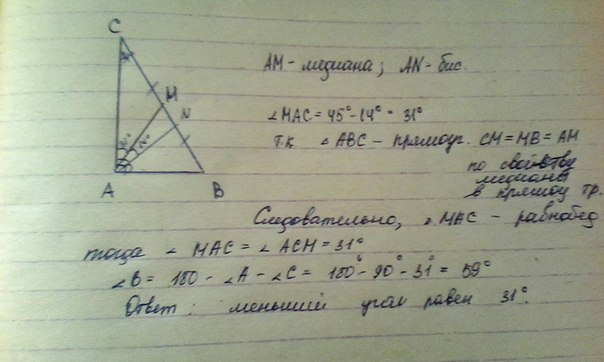 C
AM - медиана; AN - бис.
M
N
14°
A
B
∠MAC = 45° - 14° = 31°
т.к △ABC - прямоуг. CM = MB = AM
по свойству
медианы
в прямоу тр.
Следовательно, △MAC - равнобед
тогда ∠MAC = ∠ACM = 31°
∠B = 180 - ∠A - ∠C = 180° - 90° - 31° = 59°
Ответ: меньший угол равен 31°.